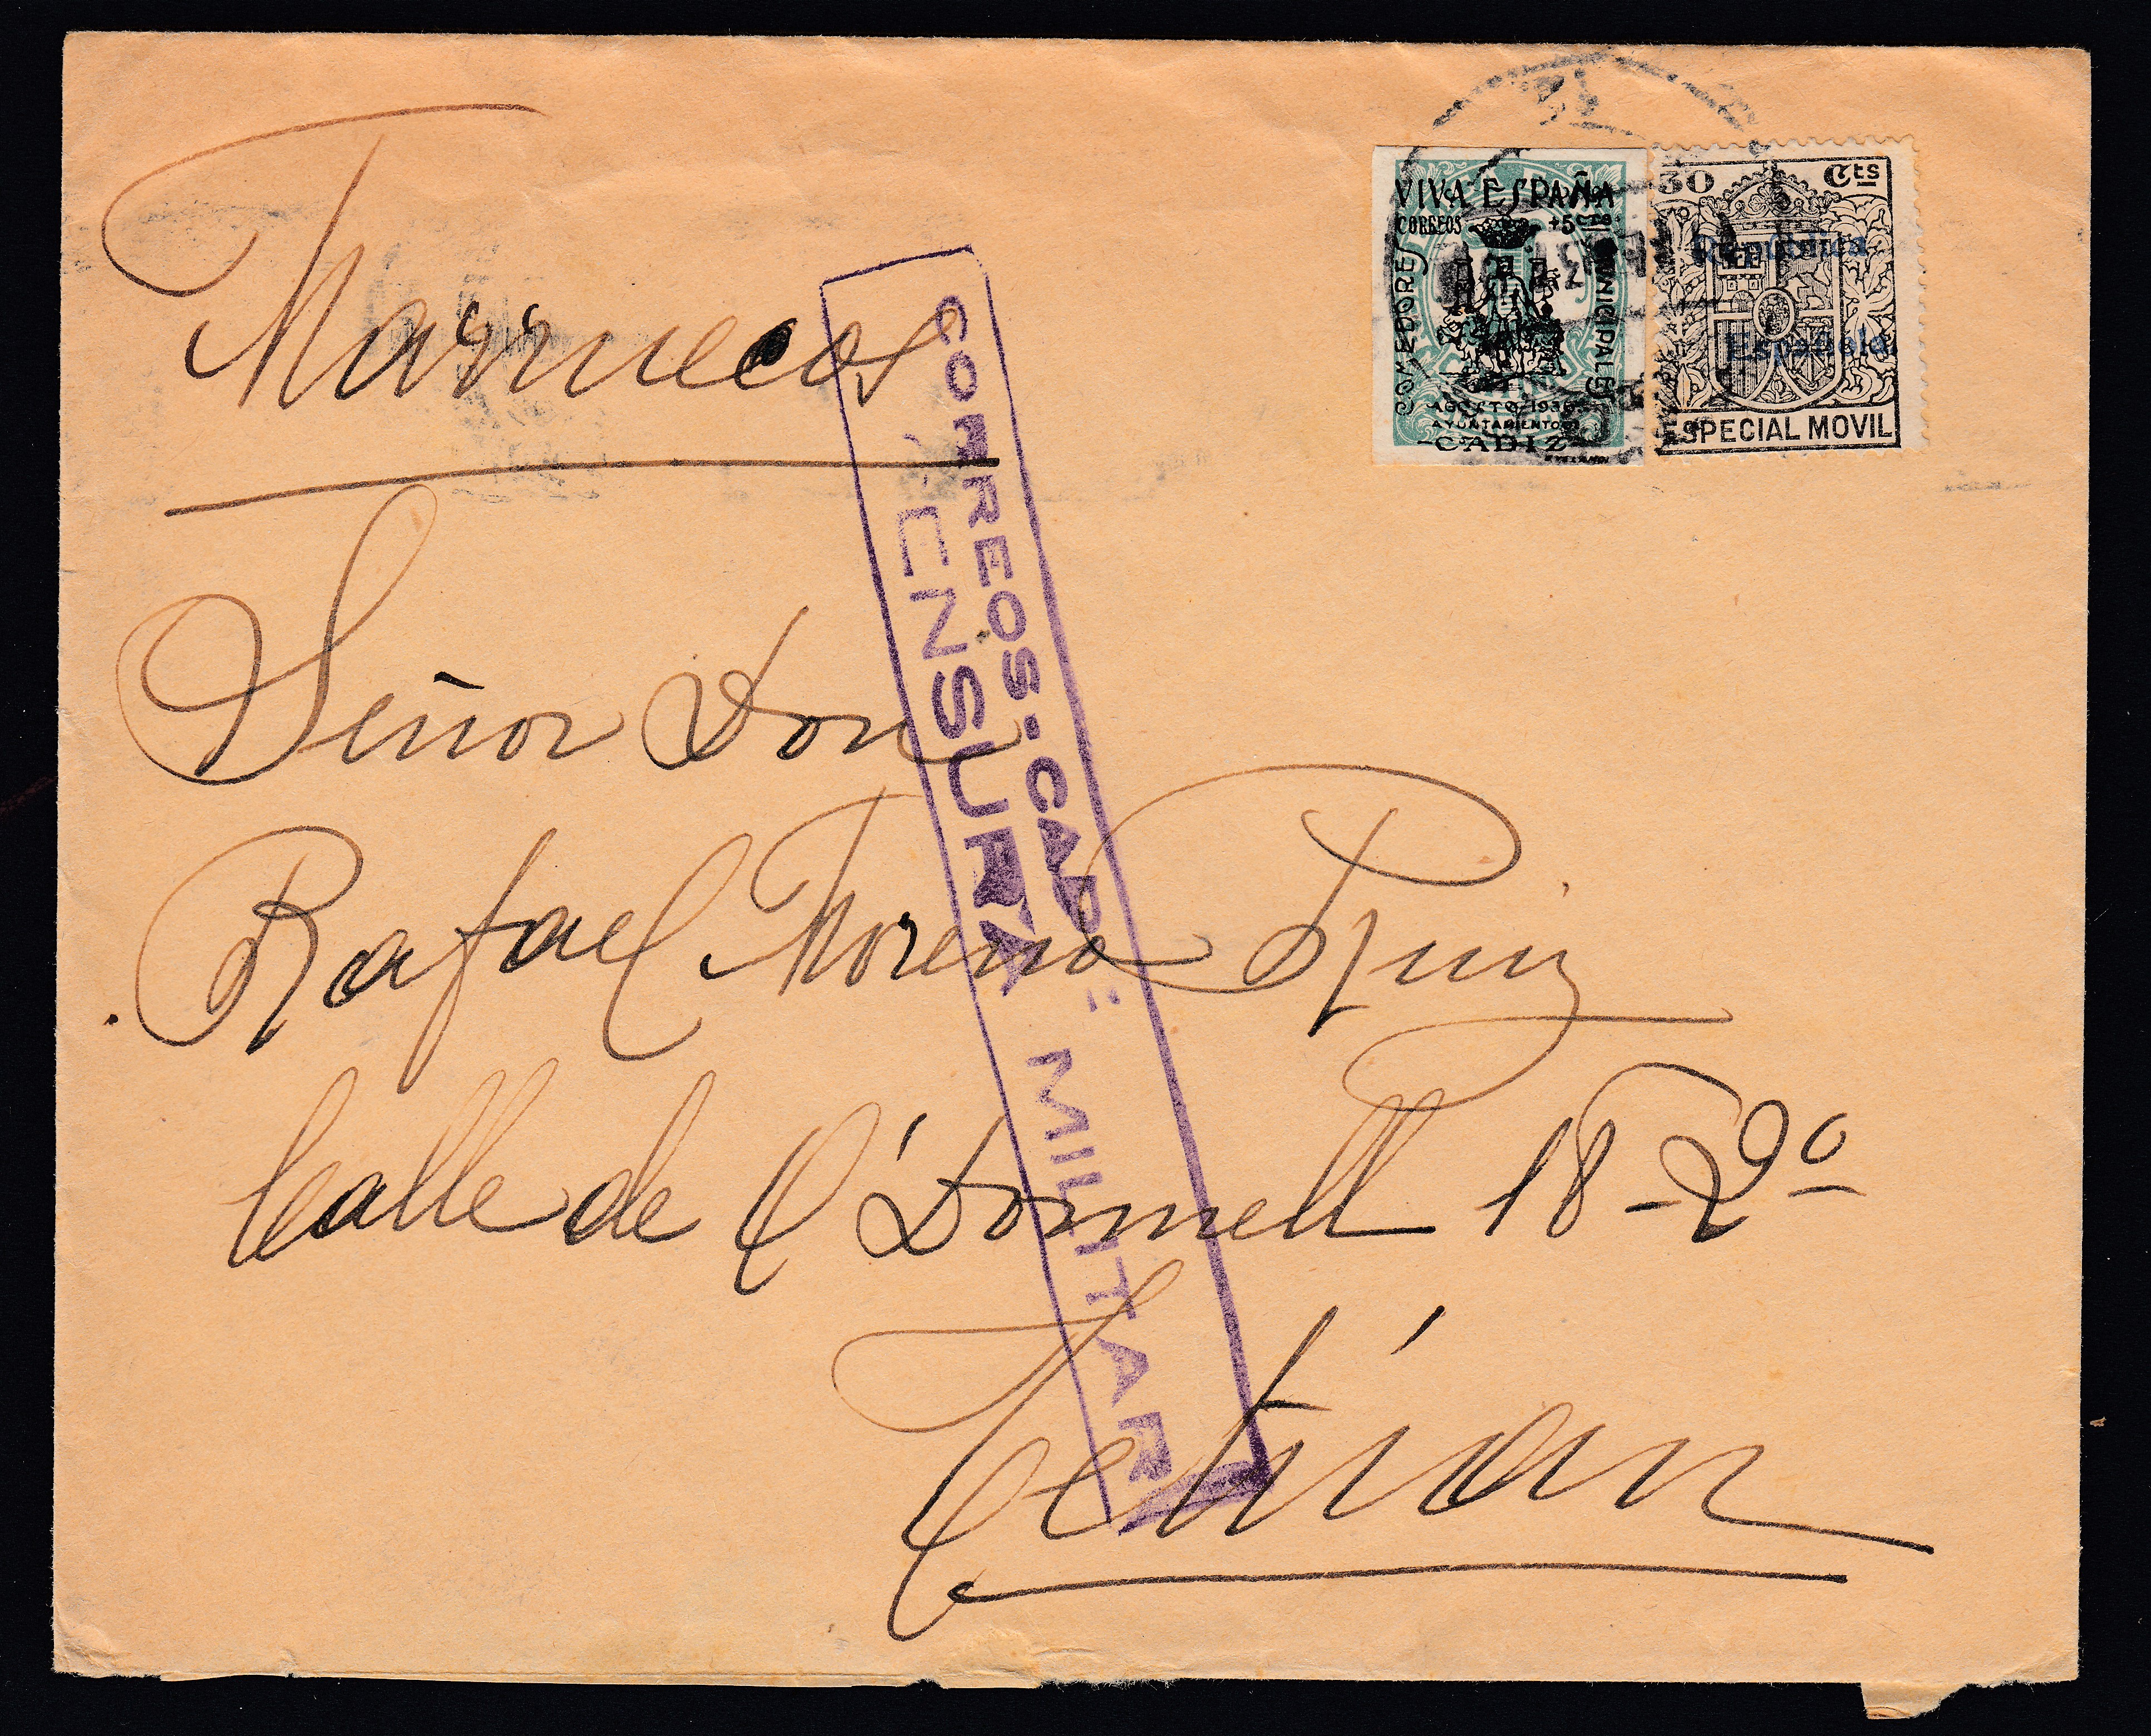 Marruecos
Señor Don
Rafael Moreno Ruiz
Calle de O'Donnell 18-2º
Tetúan
CORREOS·CAD
CENSURA MILITAR
VIVA ESPAÑA
CORREOS +5 CTS
COMEDORES
MUNICIPALES
AGOSTO 1936
AYUNTAMIENTO
-CADIZ-
30 Cts
República
Española
ESPECIAL MOVIL